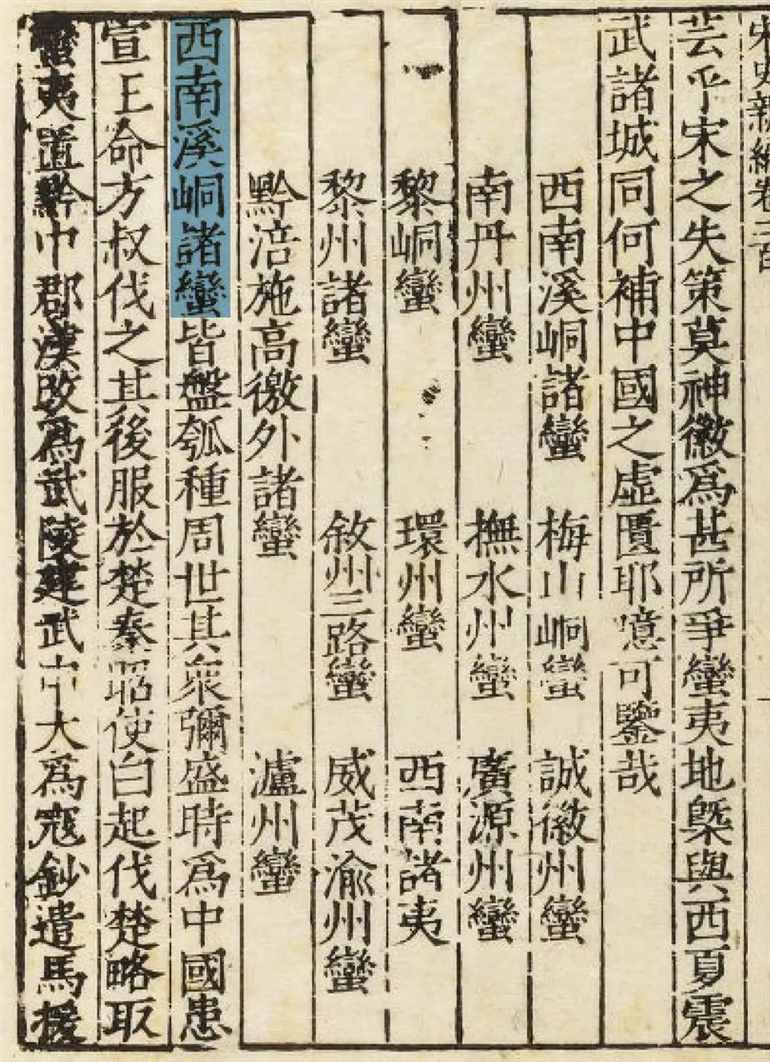 宋史新編卷二百
芸乎宋之失策莫神徽爲甚所爭蠻夷地槩與西夏震
武諸城同何補中國之虛匱耶噫可鑒哉
西南溪峒諸蠻 梅山峒蠻 誠徽州蠻
南丹州蠻 撫水州蠻 廣源州蠻
黎峒蠻 環州蠻 西南諸夷
黎州諸蠻 敘州三路蠻 威茂渝州蠻
黔涪施高徼外諸蠻 瀘州蠻
西南溪峒諸蠻皆盤瓠種周世其衆彌盛時爲中國患
宣王命方叔伐之其後服於楚秦昭使白起伐楚略取
蠻夷置黔中郡漢改爲武陵建武中大爲寇鈔遣馬援